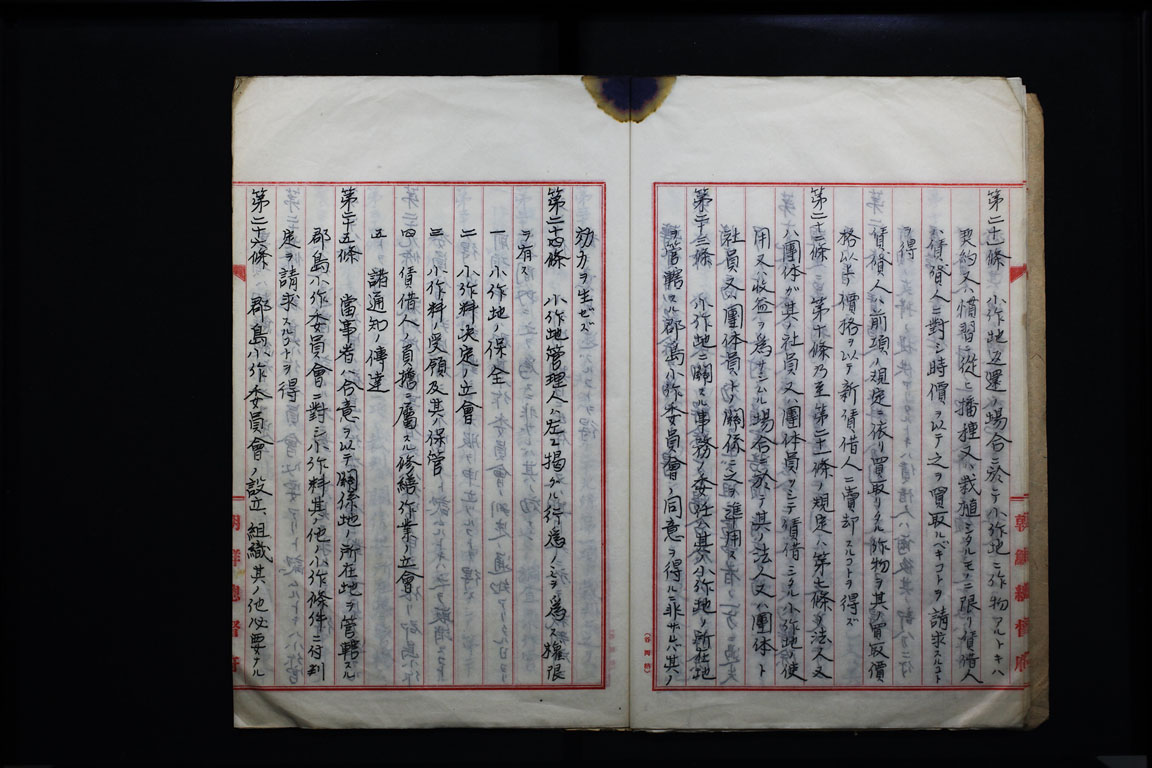 第二十一條 小作地返還ノ場合ニ於テ小作地ニ作物アルトキハ
契約又ハ慣習ニ從ヒ播種又ハ栽植シタルモノニ限リ賃借人
ハ賃貸人ニ對シ時價ヲ以テ之ヲ買取ルベキコトヲ請求スルコト
ヲ得
賃貸人ハ前項ノ規定ニ依リ買取リタル作物ヲ其ノ買取價
格以上ノ價格ヲ以テ新賃借人ニ賣却スルコトヲ得ズ
第二十二條 第十條乃至第二十一條ノ規定ハ第七條ノ法人又
ハ團体ガ其ノ社員又ハ團体員ヲシテ賃借シタル小作地ヲ使
用又ハ收益ヲ爲サシムル場合ニ於テ其ノ法人又ハ團体ト
社員又ハ團体員トノ關係ニ之ヲ準用ス
第二十三條 小作地ニ關スル事務ノ委任ハ其ノ小作地ノ所在地
ヲ管轄スル郡島小作委員會ノ同意ヲ得ルニ非ザレバ其ノ
効力ヲ生ゼズ
第二十四條 小作地管理人ハ左ニ揭グル行爲ノミヲ爲ス權限
ヲ有ス
一 小作地ノ保全
二 小作料決定ノ立會
三 小作料ノ受領及其ノ保管
四 賃借人ノ負擔ニ屬スル修繕作業ノ立會
五 諸通知ノ傳達
第二十五條 當事者ハ合意ヲ以テ關係地ノ所在地ヲ管轄スル
郡島小作委員會ニ對シ小作料其ノ他ノ小作條件ニ付判
定ヲ請求スルコトヲ得
第二十六條 郡島小作委員會ノ設立、組織其ノ他必要ナル
朝鮮總督府
朝鮮總督府